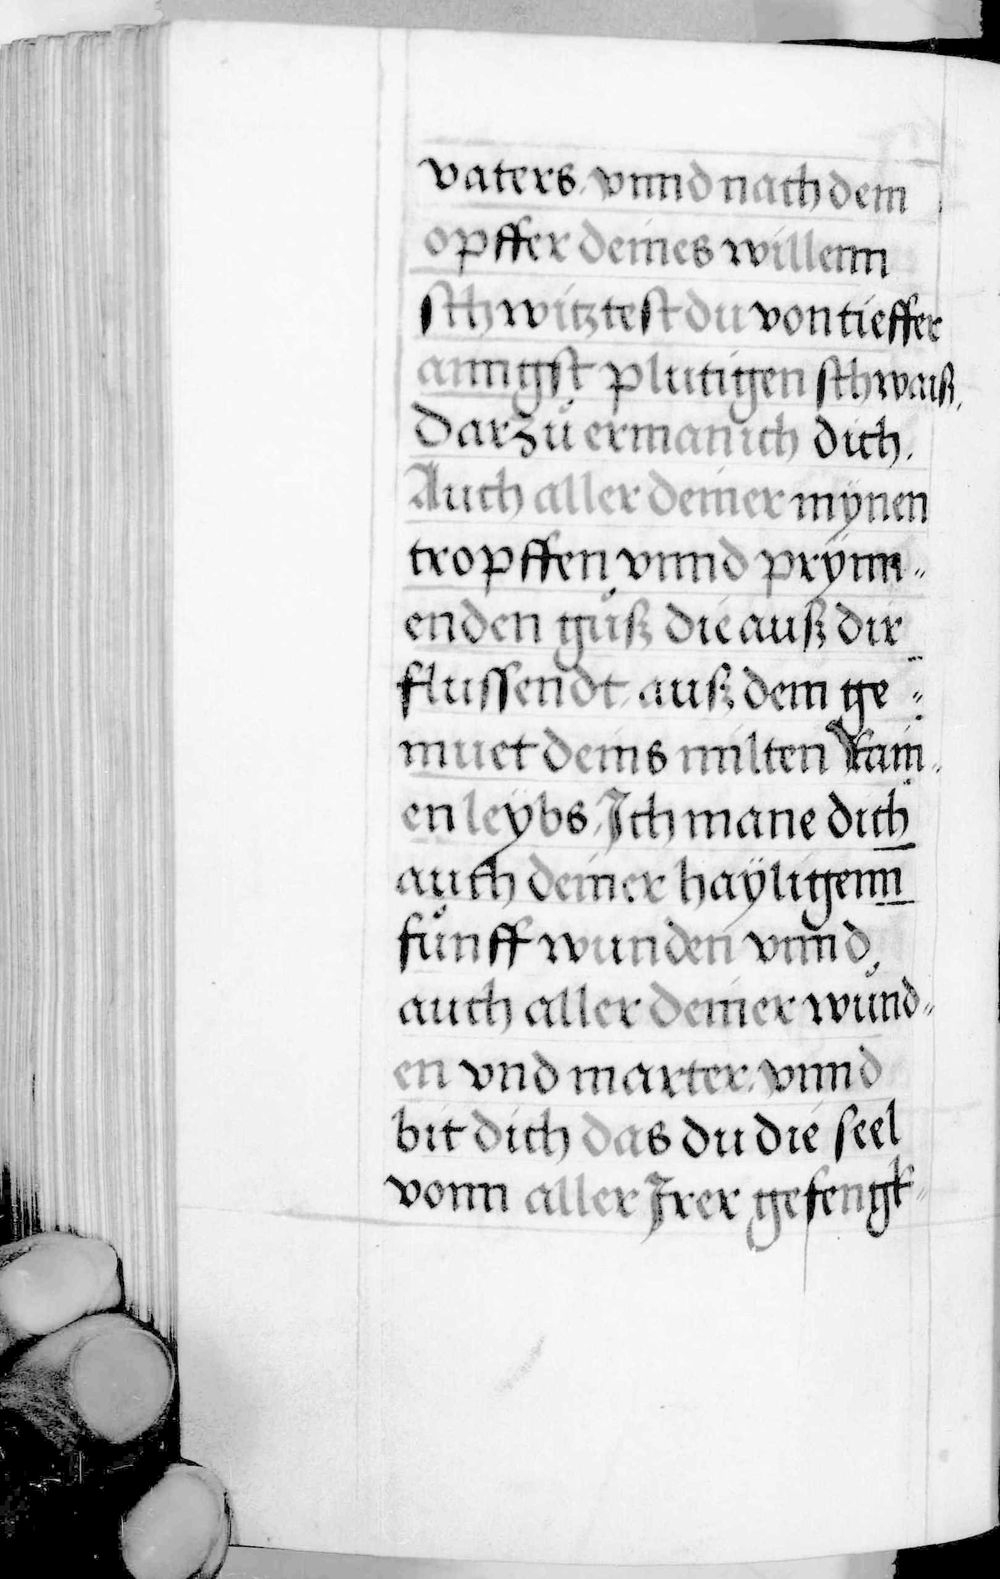 vaters. vnnd nach dem
opffer deines willenn
schwitztest du von tieffer
anngst plutigen schwaiß.
Darzů erman ich dich.
Auch aller deiner mÿnen
tropffen vnnd prÿnn-
enden gůß die auß dir
flussendt. auß dem ge-
muet deins milten Rain-
en leÿbs. Ich mane dich
auch deiner haÿligenn
fůnff wunden vnnd
auch aller deiner wůnd-
en vnd marter. vnnd
bit dich das du die seel
vonn aller Irer gefengk-